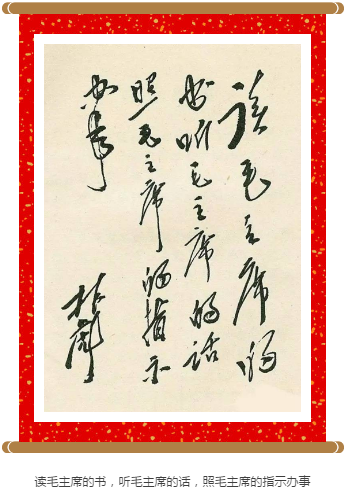 读毛主席的
书听毛主席的话
照毛主席的指示
办事
林彪
读毛主席的书，听毛主席的话，照毛主席的指示办事